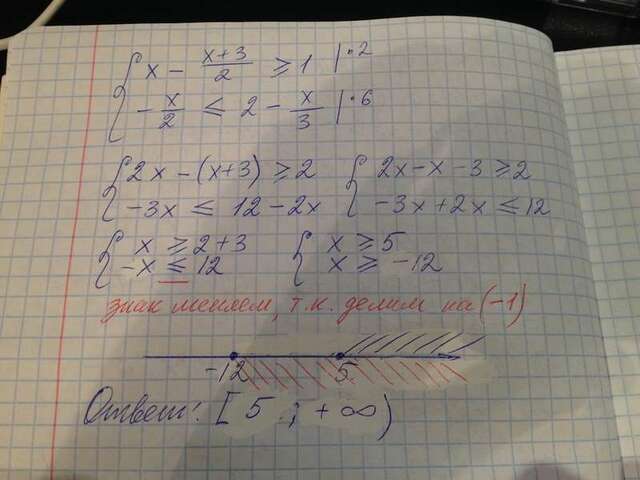 { x - (x+3)/2 ≥ 1 | · 2
{ - x/2 ≤ 2 - x/3 | · 6
{ 2x - (x+3) ≥ 2 { 2x - x - 3 ≥ 2
{ -3x ≤ 12 - 2x { -3x + 2x ≤ 12
{ x ≥ 2 + 3 { x ≥ 5
{ -x ≤ 12 { x ≥ -12
знак меняем, т.к. делим на (-1)
-12 5
Ответ: [5; +∞)